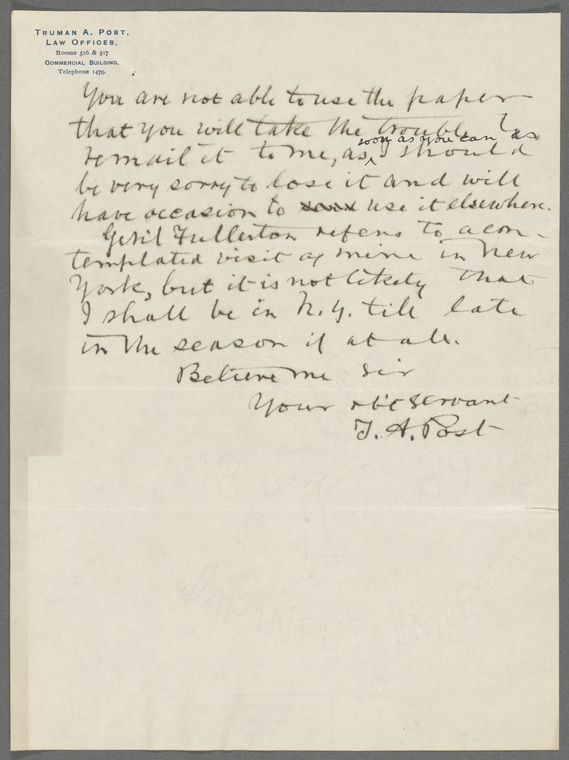 TRUMAN A. POST,
LAW OFFICES,
Rooms 516 & 517
COMMERCIAL BUILDING,
Telephone 1479.
You are not able to use the paper
that you will take the trouble to
soon as you can as
remail it to me, as I should
be very sorry to lose it and will
have occasion to use it elsewhere.
Genl Fullerton refers to a con-
templated visit of mine in New
York, but it is not likely that
I shall be in N.Y. till late
in the season if at all.
Believe me Sir
Your obt servant
T. A. Post